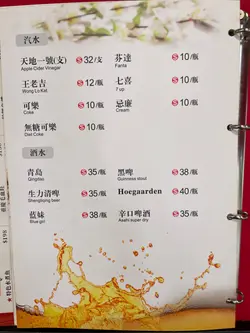 汽水
天地一號(支) $32/支 芬達 $10/瓶
Apple Cider Vinegar Fanta
王老吉 $12/瓶 七喜 $10/瓶
Wong Lo Kat 7 up
可樂 $10/瓶 忌廉 $10/瓶
Coke Cream
無糖可樂 $10/瓶
Diet Coke
酒水
青島 $35/瓶 黑啤 $38/瓶
Qingdao Guinness stout
生力清啤 $35/瓶 Hoegaarden $40/瓶
藍妹 $38/瓶 辛口啤酒 $35/瓶
Bluegirl Asahi super dry
$198